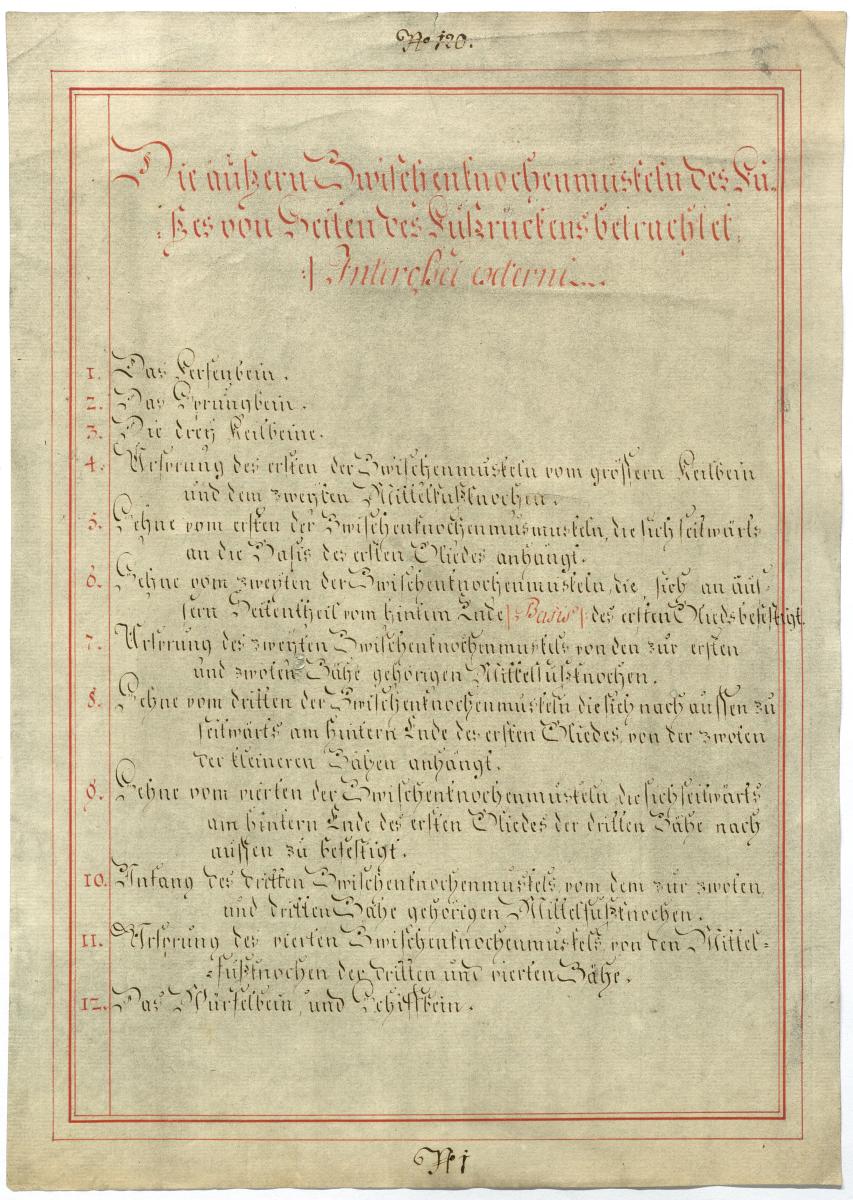 No 120.
Die äußern Zwischenknochenmuskeln des Fu-
ßes von Seiten des Fußrückens betrachtet,
:| Interossei externi...
1. Das Fersenbein.
2. Das Sprungbein.
3. Die drey Keilbeine.
4. Ursprung des ersten der Zwischenmuskeln vom grössern Keilbein
und dem zweyten Mittelfußknochen.
5. Sehne vom ersten der Zwischenknochenmusmuskeln, die sich seitwärts
an die Basis des ersten Gliedes anhangt.
6. Sehne vom zweyten der Zwischenknochenmuskeln, die sich an äus-
sern Seitentheil vom hintern Ende |: Basis :| des ersten Glieds befestigt.
7. Ursprung des zweyten Zwischenknochenmuskels von den zur ersten
und zwoten Zähe gehörigen Mittelfußknochen.
8. Sehne vom dritten der Zwischenknochenmuskeln die sich nach aussen zu
seitwärts am hintern Ende des ersten Gliedes, von der zwoten
der kleineren Zähen anhängt.
9. Sehne vom vierten der Zwischenknochenmuskeln, die sich seitwärts
am hintern Ende des ersten Gliedes der dritten Zähe nach
aussen zu befestigt.
10. Anfang des dritten Zwischenknochenmuskels, vom dem zur zwoten,
und dritten Zähe gehörigen Mittelfußknochen.
11. Ursprung des vierten Zwischenknochenmuskels, von den Mittel-
-fußknochen der dritten und vierten Zähe.
12. Das Würfelbein, und Schiffbein.